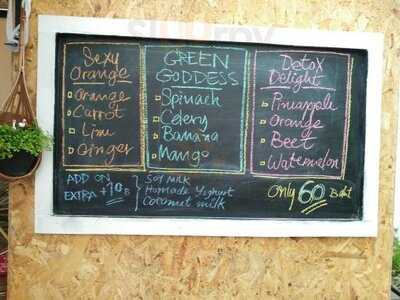 Sexy
Orange
Orange
Carrot
Lime
Ginger
GREEN
GODDESS
Spinach
Celery
Banana
Mango
Detox
Delight
Pineapple
Orange
Beet
Watermelon
ADD ON
EXTRA +10 B
Soy MiLK
Homade Yoghurt
Coconut milk
Only 60 Baht